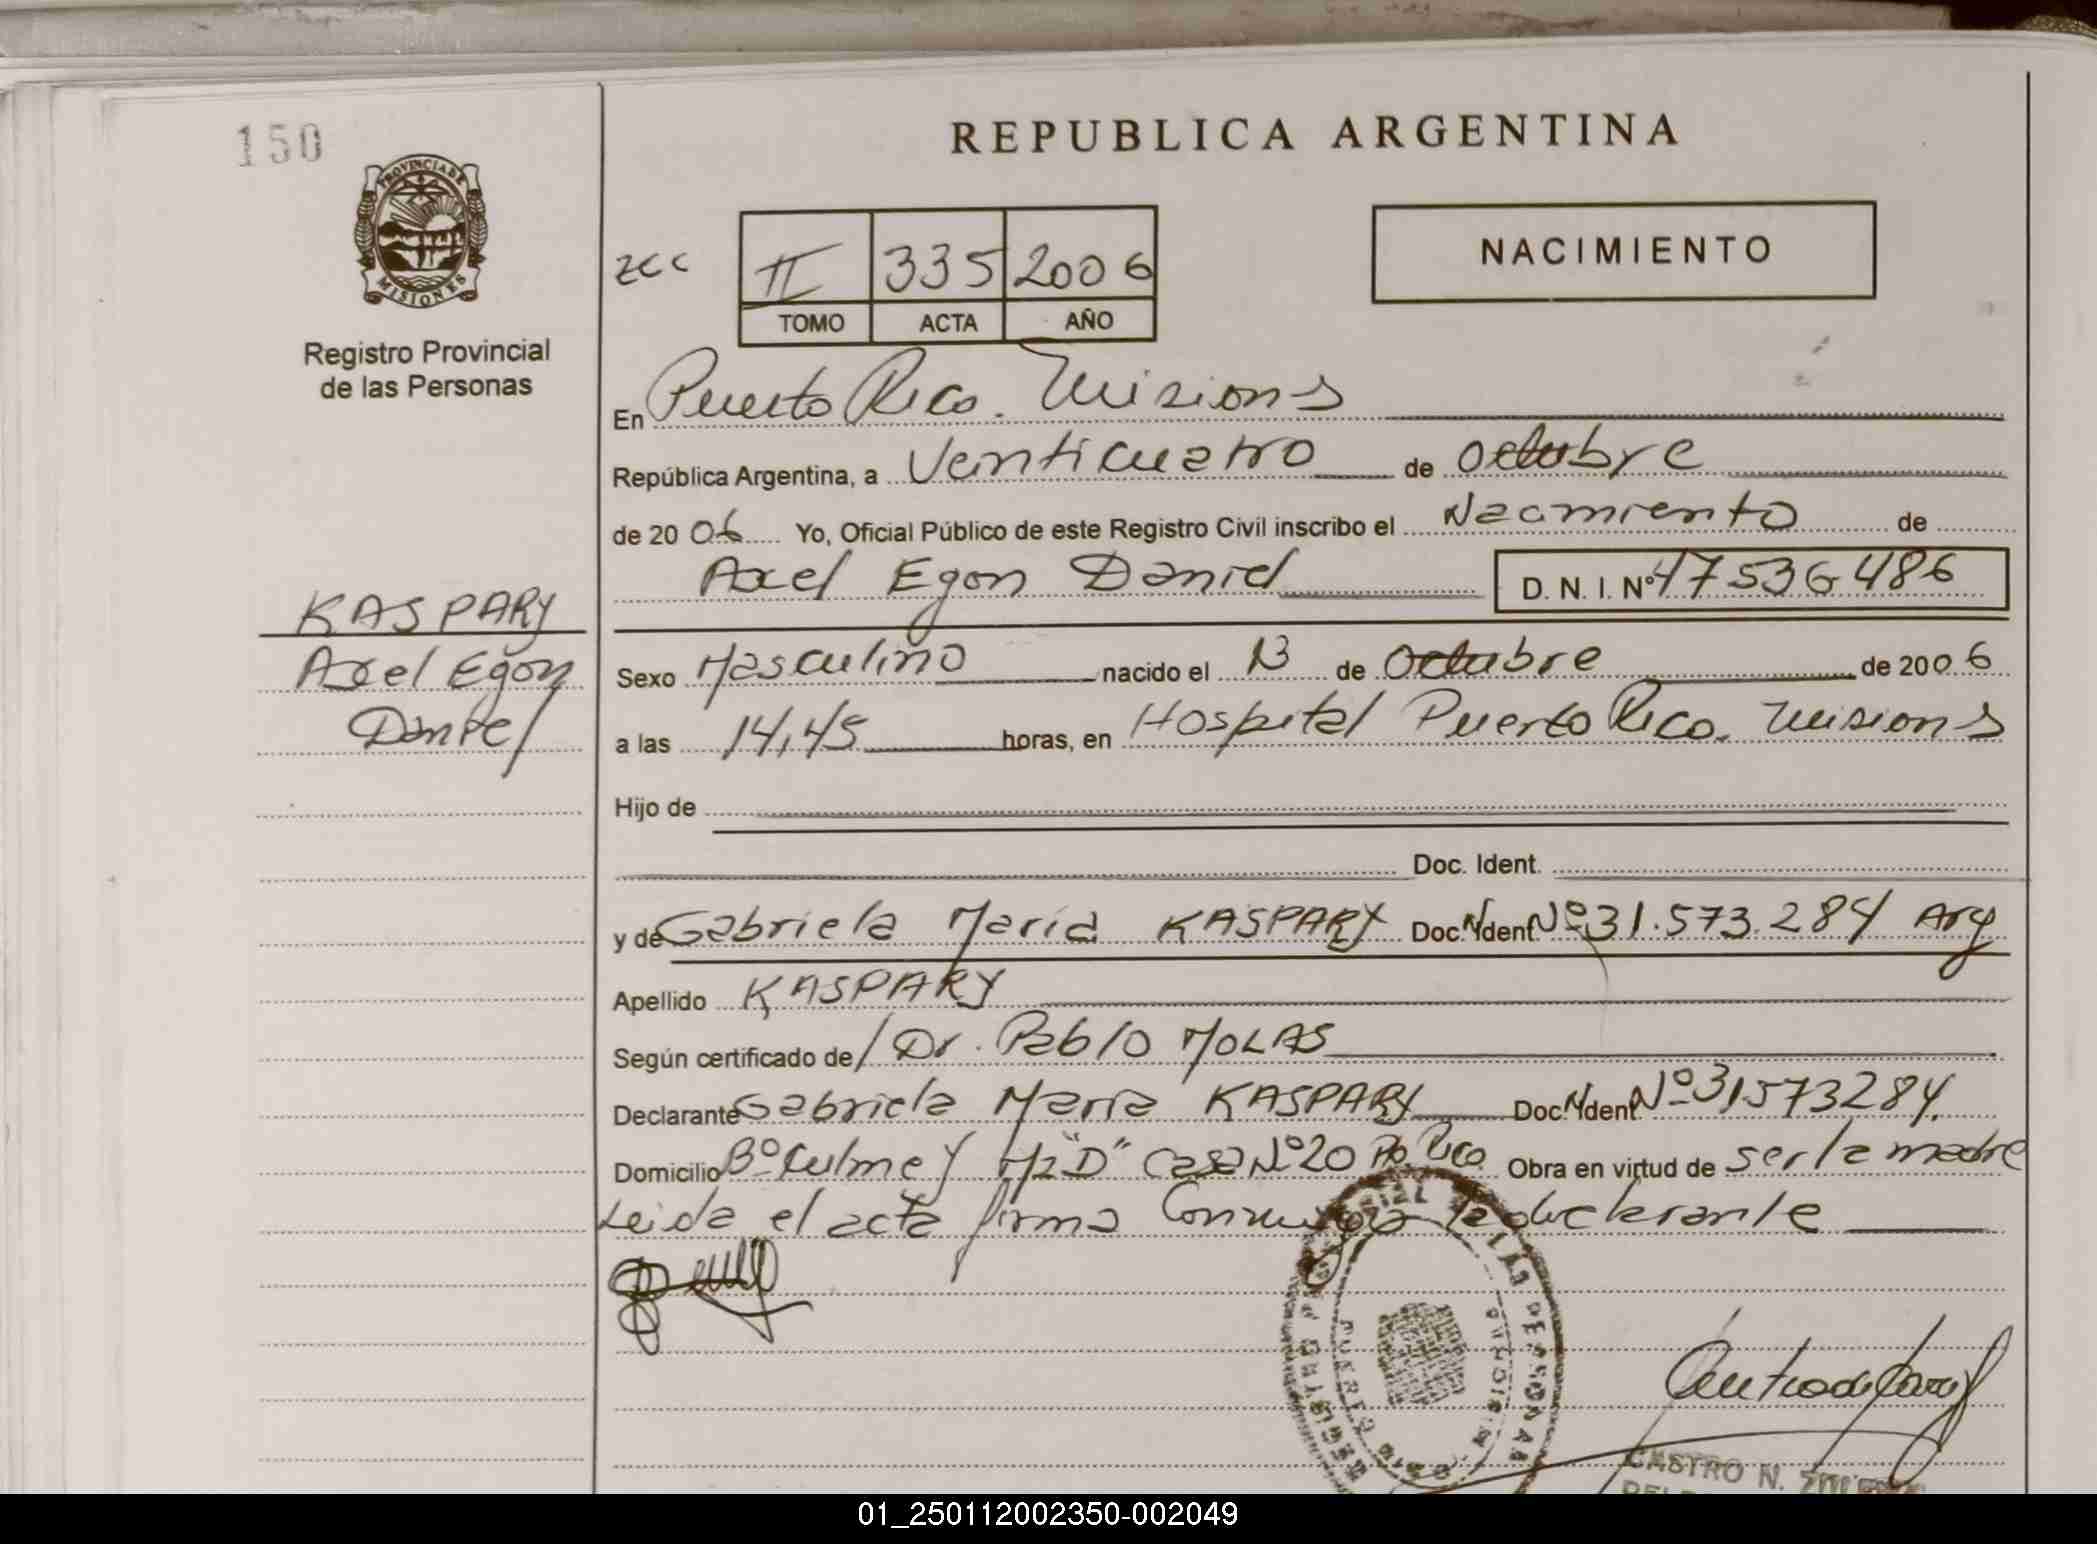 150
PROVINCIA DE
MISIONES
Registro Provincial
de las Personas
KASPARY
Axel Egon
Daniel
REPUBLICA ARGENTINA
NACIMIENTO
II 335 2006
TOMO ACTA AÑO
En Puerto Rico. Misiones
República Argentina, a Veinticuatro de Octubre
de 2006 Yo, Oficial Público de este Registro Civil inscribo el Nacimiento de
Axel Egon Daniel D. N. I. Nº 47536486
Sexo Masculino nacido el 13 de Octubre de 2006
a las 14,45 horas, en Hospital Puerto Rico. Misiones
Hijo de
Doc. Ident.
y de Gabriela María KASPARY Doc. Ident. Nº 31.573.284 Arg
Apellido KASPARY
Según certificado de Dr. Pablo MOLAS
Declarante Gabriela María KASPARY Doc. Ident. Nº 31573284.
Domicilio Bº Culmey Mz "D" Casa Nº 20 Pto. Rico Obra en virtud de ser la madre
Leida el acta firma Conmigo la declarante
REGISTRO PROVINCIAL DE LAS PERSONAS
PUERTO RICO MISIONES
CASTRO N.
01_250112002350-002049